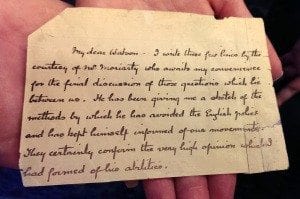 My dear Watson - I write these few lines by the
courtesy of Mr Moriarty who awaits my convenience
for the final discussion of those questions which lie
between us. He has been giving me a sketch of the
methods by which he has avoided the English police
and has kept himself informed of our movements.
They certainly confirm the very high opinion which I
had formed of his abilities.